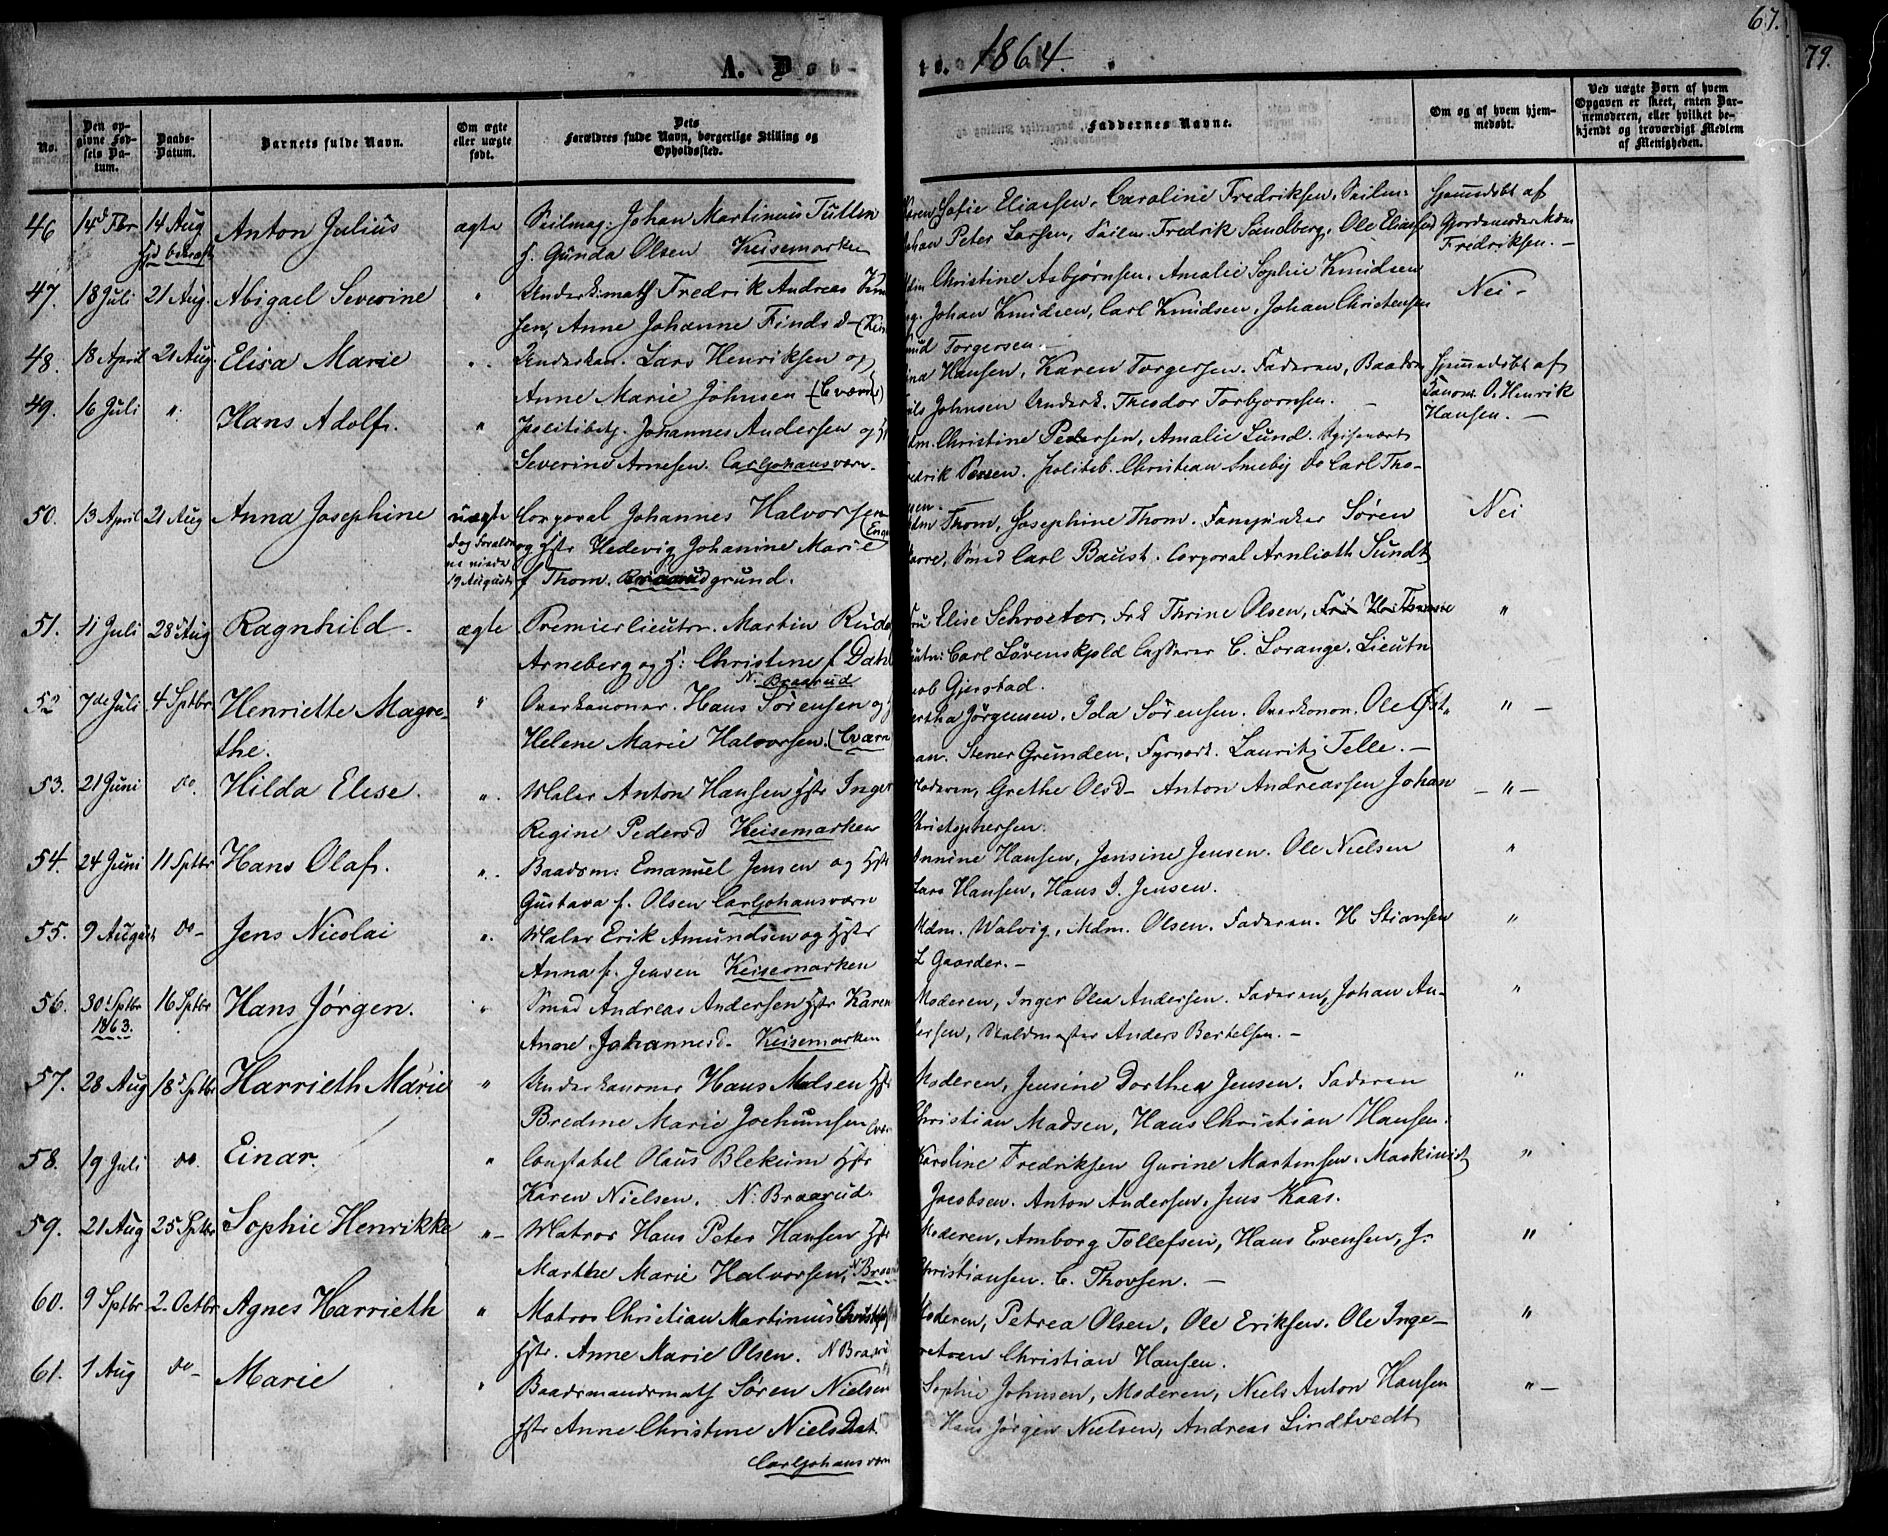 67.
79.
A. Døb-
te. 1864.
No.
Den opgivne Fødsels Datum.
Daabs-Datum.
Barnets fulde Navn.
Om ægte eller uægte født.
Dets Forældres fulde Navn, borgerlige Stilling og Opholdssted.
Faddernes Navne.
Om og af hvem hjemmedøbt.
Ved uægte Børn af hvem Opgaven er skeet, enten Barnemoderen, eller hvilket bekjendt og troværdigt Medlem af Menigheden.
46 14d Fbr 14 Aug Anton Julius ægte Seilmag: Johan Martinius Tullin Sofie Eliassen, Caroline Fredriksen, Seilm: Hjemmedøbt af
H. Gunda Olsen Keisemarken Peter Larsen, Seilm. Fredrik Sandberg, Ole Eliassen Gjordemoder Mdm
Fredriksen. —
47. 18 Juli 21 Aug. Abigael Severine " Fredrik Andreas Christine Asbjørnsen, Amalie Sophie Knudsen Nei -
sen, Anne Johanne Finds d- Johan Knudsen, Carl Knudsen, Johan Christensen
Torgersen. —
48. 18 April 21 Aug. Elisa Marie " Underkan. Lars Henriksen og Hansen, Karen Torgersen. Faderen, Baadsm Hjemmedøbt af
Anne Marie Johnsen Johnsen Underk. Theodor Torbjørnsen. — O. Henrik
Hansen. —
49. 16 Juli " Hans Adolf. " Politibetj. Johannes Andersen og Christine Pedersen, Amalie Lund.
Severine Arnesen. Carljohansværn. Politib. Christian Smeby do Carl Tho-
50. 13 April 21 Aug Anna Josephine uægte Corporal Johannes Halvorsen Thom, Josephine Thom. Søren Nei
og Hstr Hedevig Johanine Marie Smed Carl Baust. Corporal Arnlioth Sundt
19 August f Thom.
51. 11 Juli 28 Aug Ragnhild. ægte Premierlieutn. Martin Elise Schroeter, Frk Thrine Olsen, "
Arneberg og H: Christine f Dahl Carl Løvenskjold Casserer C. Lorange. Lieutn
N. Braarud Gjerstad.
52 7de Juli 4 Sptbr Henriette Magre- " Overkanoner. Hans Sørensen og Jørgensen. Ida Sørensen. Overkonon. Ole Øst- " —
the. Helene Marie Halvorsen. Stener Grunden, Fyrvort. Lauritz Telle. —
53. 21 Juni do. Hilda Elise. " Maler Anton Hansen Hstr Inger Moderen, Grethe Olsd- Anton Andreassen Johan — " —
Regine Pedersd Keisemarken Christophersen.
54. 24 Juni 11 Sptbr Hans Olaf. " Baadsm: Emanuel Jensen og Hstr Annine Hansen, Jensine Jensen. Ole Nielsen "
Gustava f. Olsen Carljohansværn Lars Hansen, Hans J. Jensen.
55. 9 August do- Jens Nicolai " Maler Erik Amundsen og Hstr Mdm. Walvig, Mdm. Olsen. Faderen. H Stiansen "
Anna f. Jensen Keisemarken L Gaarder. —
56. 30t Sptbr 1863. 16 Sptbr Hans Jørgen. " Smed Andreas Andersen Hstr Karen Moderen, Inger Olea Andersen. Faderen, Johan An- "
Anne Johannesd- Keisemarken dersen, Staldmester Anders Bertelsen. —
57. 28 Aug 18 Sptbr Harrieth Marie " Underkanoner Hans Madsen Hstr Moderen, Jensine Dorthea Jensen. Faderen "
Bredine Marie Jochumsen Christian Madsen, Hans Christian Hansen.
58. 19 Juli do. Einar. " Constabel Olaus Blekum Hstr Karoline Fredriksen Gurine Martensen. Maskinist "
Karen Nielsen. N. Braarud. Jacobsen. Anton Andersen, Jens Kaas.
59. 21 Aug 25 Sptbr Sophie Henrikke " Matros Hans Peter Hansen Hstr Moderen, Amborg Tollefsen, Hans Evensen, J. "
Marthe Marie Halvorsen, Christiansen. C. Thovsen. —
60. 9 Sptbr 2. Octbr Agnes Harrieth " Matros Christian Martinius Moderen, Petrea Olsen, Ole Eriksen. Ole Inge- "
Hstr. Anne Marie Olsen. Christian Hansen.
61. 1 Aug do- Marie " Baadsmandsmat Søren Nielsen Sophie Johnsen, Moderen, Niels Anton Hansen " —
Hstr Anne Christine Nielsdat Hans Jørgen Nielsen, Andreas Lindtvedt
Carljohansværn